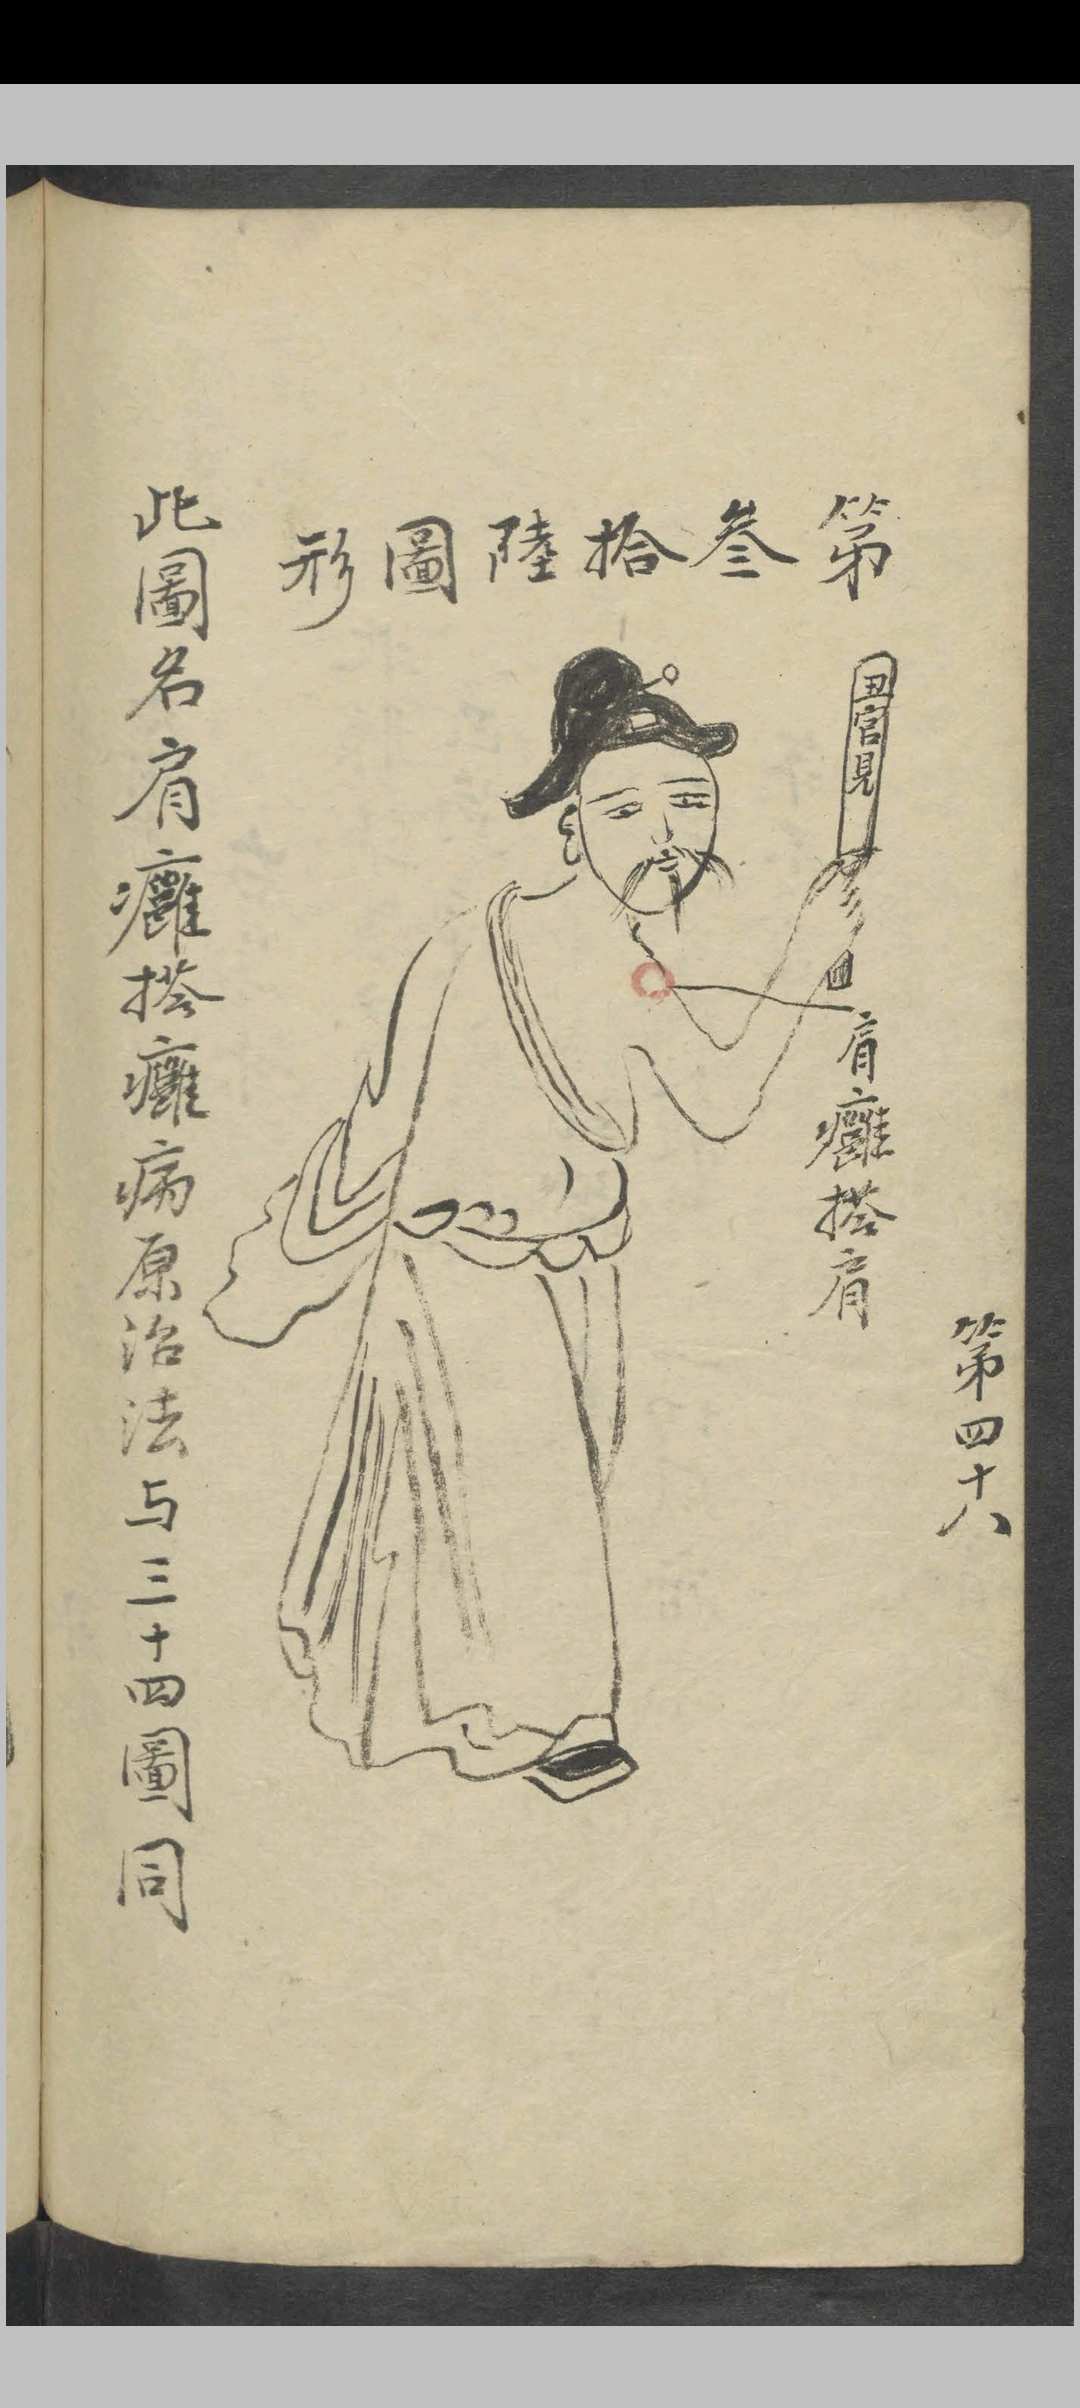 第四十八
第叁拾陸圖形
丑官見
肩癰搭肩
此圖名肩癰搭癰病原治法与三十四圖同